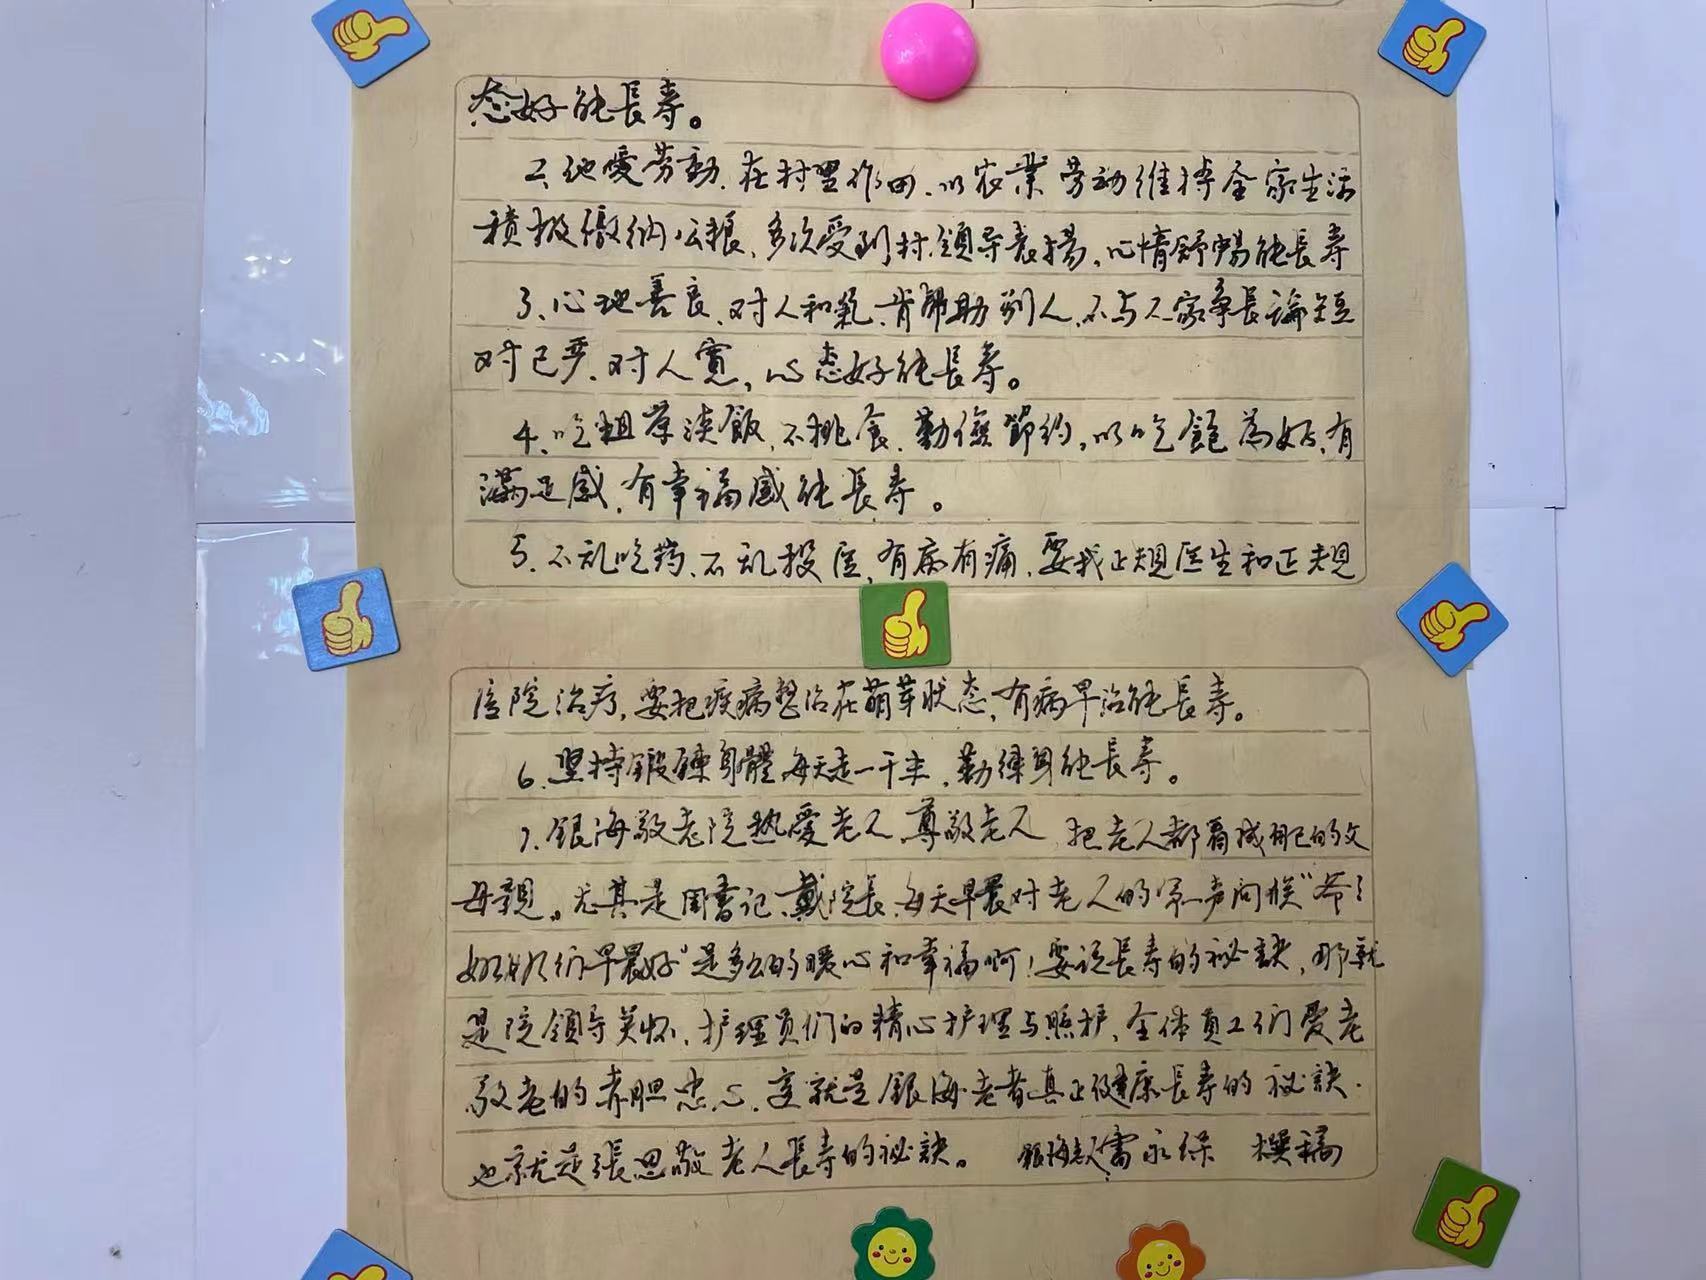 态好能長寿。
2、他愛劳動，在村里作田，以农業劳动维持全家生活
積极缴纳公粮，多次受到村領导表揚，心情舒暢能長寿
3、心地善良，对人和氣，肯帮助别人，不与人家争長論短
对己严，对人寬，心态好能長寿。
4、吃粗茶淡飯，不挑食，勤儉節约，以吃飽為好，有
满足感，有幸福感能長寿。
5、不乱吃药，不乱投医，有病有痛，要找正規医生和正規
医院治疗，要把疾病整治在萌芽状态，有病早治能長寿。
6、坚持鍛鍊身體每天走一千米，勤練身能長寿。
7、銀海敬老院热愛老人 尊敬老人 把老人都看成自己的父
母親。尤其是周書记、戴院長，每天早晨对老人的第一声问候“爷々
奶奶们早晨好”是多么的暖心和幸福啊！要说長寿的秘訣，那就
是院領导关怀，护理员们的精心护理与照护，全体员工们愛老
敬老的赤胆忠心，這就是銀海老者真正健康長寿的秘訣．
也就是張思敬老人長寿的秘訣。 銀海老人雷永保 撰稿